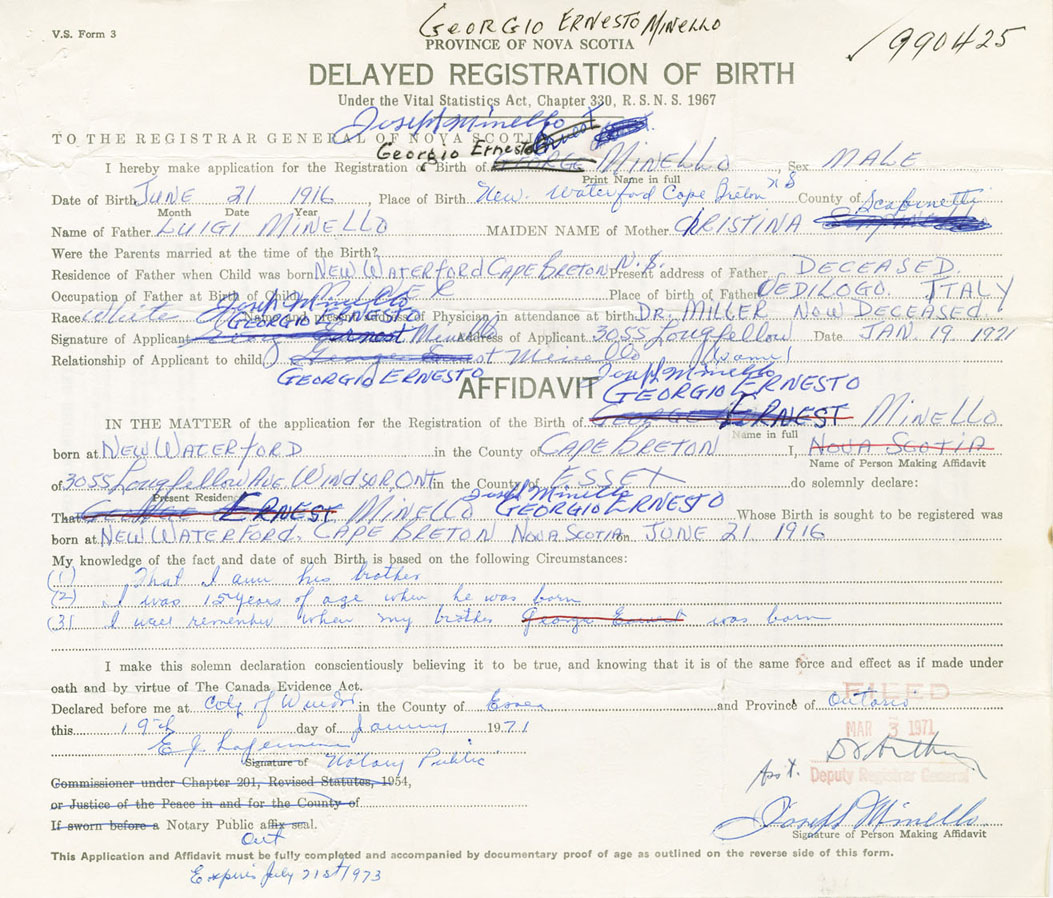 GEORGIO ERNESTO MINELLO
V.S. Form 3
PROVINCE OF NOVA SCOTIA
✓990425
DELAYED REGISTRATION OF BIRTH
Under the Vital Statistics Act, Chapter 330, R.S.N.S. 1967
Joseph Minello
TO THE REGISTRAR GENERAL OF NOVA SCOTIA
Georgio Ernesto
I hereby make application for the Registration of Birth of GEORGE MINELLO, Sex MALE
Print Name in full
Date of Birth JUNE 21 1916, Place of Birth New Waterford Cape Breton NS County of Scapinetti
Month Date Year
Name of Father LUIGI MINELLO MAIDEN NAME of Mother CHRISTINA
Were the Parents married at the time of the Birth?
Residence of Father when Child was born NEW WATERFORD CAPE BRETON N.S. Present address of Father DECEASED.
Occupation of Father at Birth of Child Place of birth of Father PEDILOGO ITALY
Joseph Minello
Race White Name and present address of Physician in attendance at birth DR. MILLER NOW DECEASED
GEORGIO ERNESTO
Signature of Applicant Ernest Minello Address of Applicant 3055 Longfellow Date JAN. 19 1971
Relationship of Applicant to child George Ernest Minello (same)
GEORGIO ERNESTO
Joseph Minello
AFFIDAVIT
GEORGIO ERNESTO
IN THE MATTER of the application for the Registration of the Birth of GEORGE ERNEST MINELLO
Name in full
born at NEW WATERFORD in the County of CAPE BRETON I, NOVA SCOTIA
Name of Person Making Affidavit
of 3055 Longfellow AVE. WINDSOR ONT in the County of ESSEX do solemnly declare:
Present Residence
Joseph Minello
That GEORGE ERNEST MINELLO GEORGIO ERNESTO Whose Birth is sought to be registered was
born at NEW WATERFORD, CAPE BRETON NOVA SCOTIA on JUNE 21 1916
My knowledge of the fact and date of such Birth is based on the following Circumstances:
(1) That I am his brother
(2) I was 15 years of age when he was born
(3) I well remember when my brother George Ernest was born
I make this solemn declaration conscientiously believing it to be true, and knowing that it is of the same force and effect as if made under
oath and by virtue of The Canada Evidence Act.
Declared before me at City of Windsor in the County of Essex and Province of Ontario
FILED
this 19th day of January 1971
MAR 3 1971
E J
Signature of Notary Public
Asst. Deputy Registrar General
Commissioner under Chapter 201, Revised Statutes, 1954,
or Justice of the Peace in and for the County of
If sworn before a Notary Public affix seal.
Joseph Minello
Signature of Person Making Affidavit
Ont
This Application and Affidavit must be fully completed and accompanied by documentary proof of age as outlined on the reverse side of this form.
Expires July 21st 1973